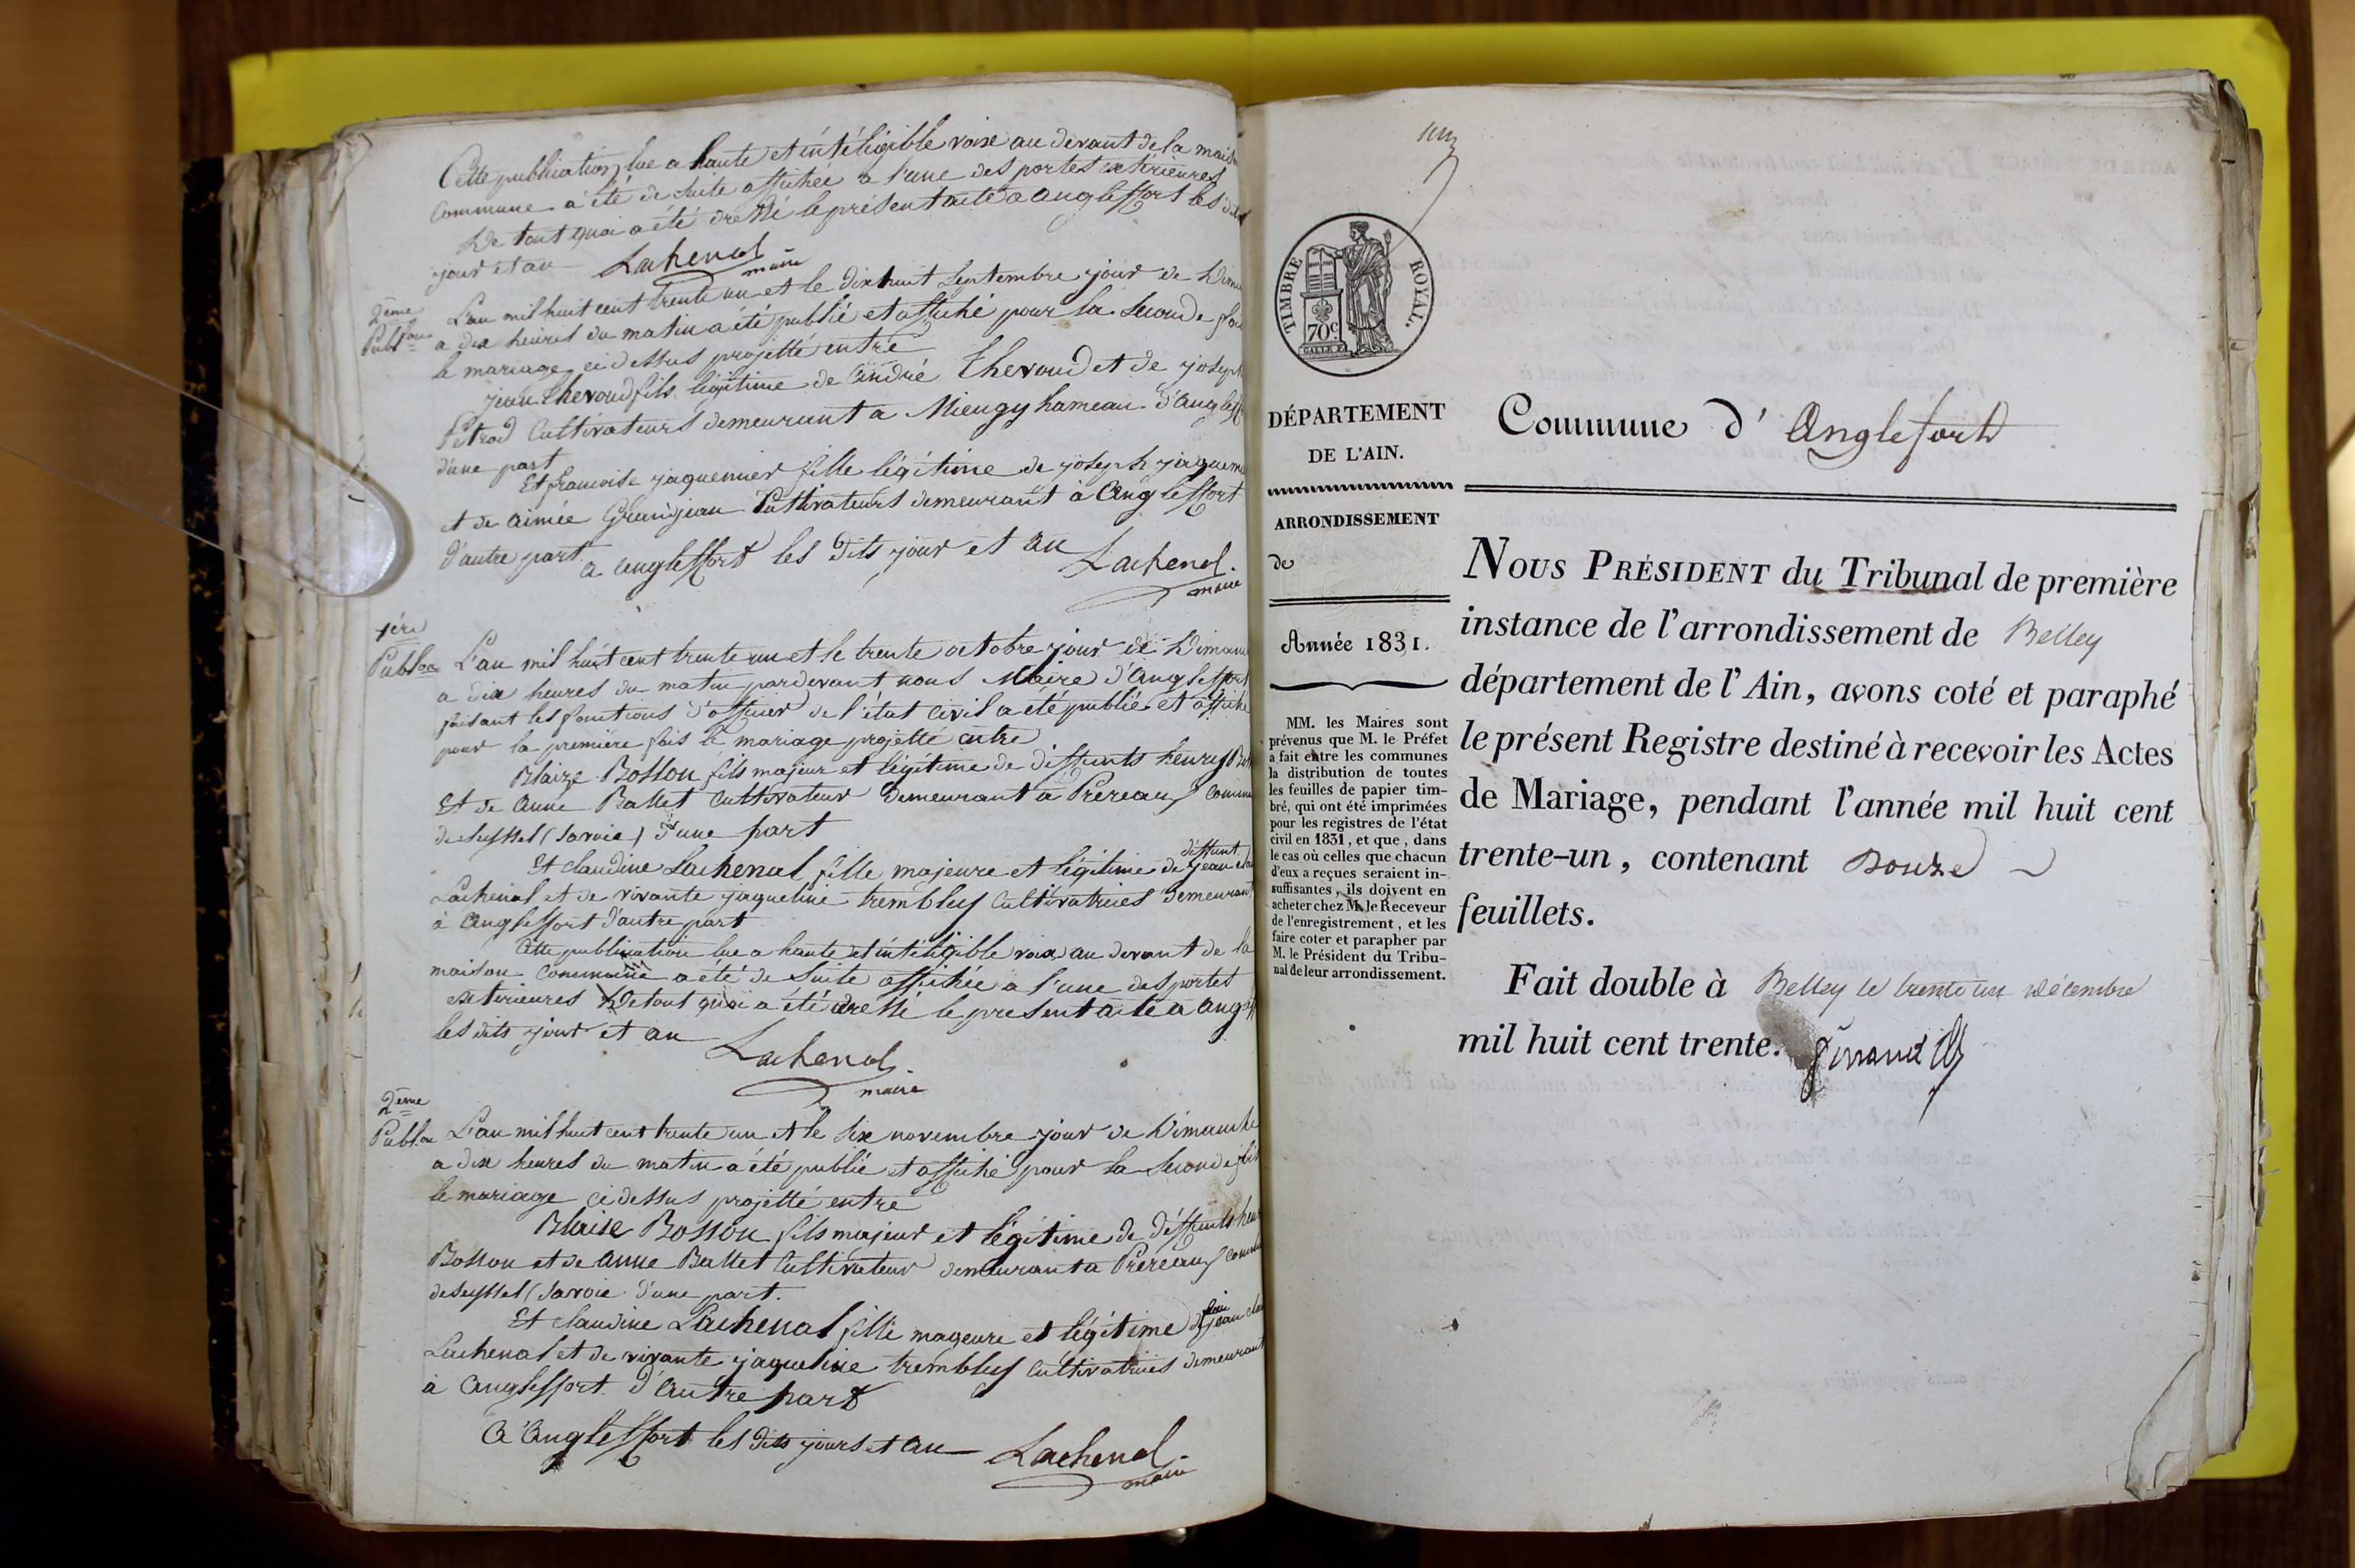 Cette publication lue a haute et intéligible voix au devant de la maison
Commune a été de suite affichée a l'une des portes extérieures
De tout quoi a été dressé le présent acte a angleffort les dits
jour et an Lachenal
maire
2ème
Publ.on
L'an mil huit cent trente un et le dix huit Septembre jour de Dim
a dix heures du matin a été publié et affiché pour la seconde foi
le mariage ci dessus projetté entre
jean thevoud fils légitime de andré thevoud et de joseph
Cultivateurs demeurant a Mieugy hameau d'angleff
d'une part
Et francoise jaquemier fille légitime de joseph jaquem
et de aimée Grandjean Cultivateurs demeurant à Angleffort
d'autre part
a angleffort les dits jour et an
Lachenal
maire
1ère
Publ.on
L'an mil huit cent trente un et le trente octobre jour de Diman
a dix heures du matin pardevant nous Maire d'angleffort
faisant les fonctions d'officier de l'état civil a été publié et affiché
pour la première fois le mariage projetté entre
Blaize Bosson fils majeur et légitime de deffunts henry Bo
Et de anne Ballet Cultivateur demeurant a Prereaux comm
de seyssel (Savoie) d'une part
deffunt
Et claudine Lachenal fille majeure et légitime de jean cla
Lachenal et de vivante jaqueline trembley Cultivatrices demeurant
à Angleffort d'autre part
Cette publication lue a haute et intéligible voix au devant de la
maison Commune a été de suite affichée a l'une des portes
exterieures De tout quoi a été dressé le present acte a angleff
les dits jour et an
Lachenal
maire
2ème
Publ.on
L'an mil huit cent trente un et le six novembre jour de Dimanche
a dix heures du matin a été publié et affiché pour la seconde foi
le mariage ci dessus projetté entre
Blaise Bosson fils majeur et légitime de deffunts hen
Bosson et de anne Ballet Cultivateur demeurant a Prereaux comm
de seyssel (Savoie d'une part.
feu
Et claudine Lachenal fille mageure et légitime de jean cla
Lachenal et de vivante jaqueline trembley Cultivatrices demeurant
à angleffort d'autre part
A Angleffort les dits jours et an Lachenal
maire
TIMBRE ROYAL.
70c
DÉPARTEMENT
DE L'AIN.
ARRONDISSEMENT
de
Année 1831.
MM. les Maires sont
prévenus que M. le Préfet
a fait entre les communes
la distribution de toutes
les feuilles de papier tim-
bré, qui ont été imprimées
pour les registres de l'état
civil en 1831, et que, dans
le cas où celles que chacun
d'eux a reçues seraient in-
suffisantes, ils doivent en
acheter chez M. le Receveur
de l'enregistrement, et les
faire coter et parapher par
M. le Président du Tribu-
nal de leur arrondissement.
Commune d' Anglefort
NOUS PRÉSIDENT du Tribunal de première
instance de l'arrondissement de Belley
département de l'Ain, avons coté et paraphé
le présent Registre destiné à recevoir les Actes
de Mariage, pendant l'année mil huit cent
trente-un, contenant Douze
feuillets.
Fait double à Belley le trente un décembre
mil huit cent trente.